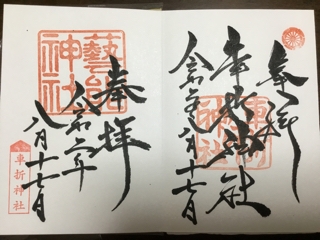 奉拝
車折神社
令和元年八月十七日
車折神社
奉拝
令和元年
八月十七日
藝能神社
車折神社